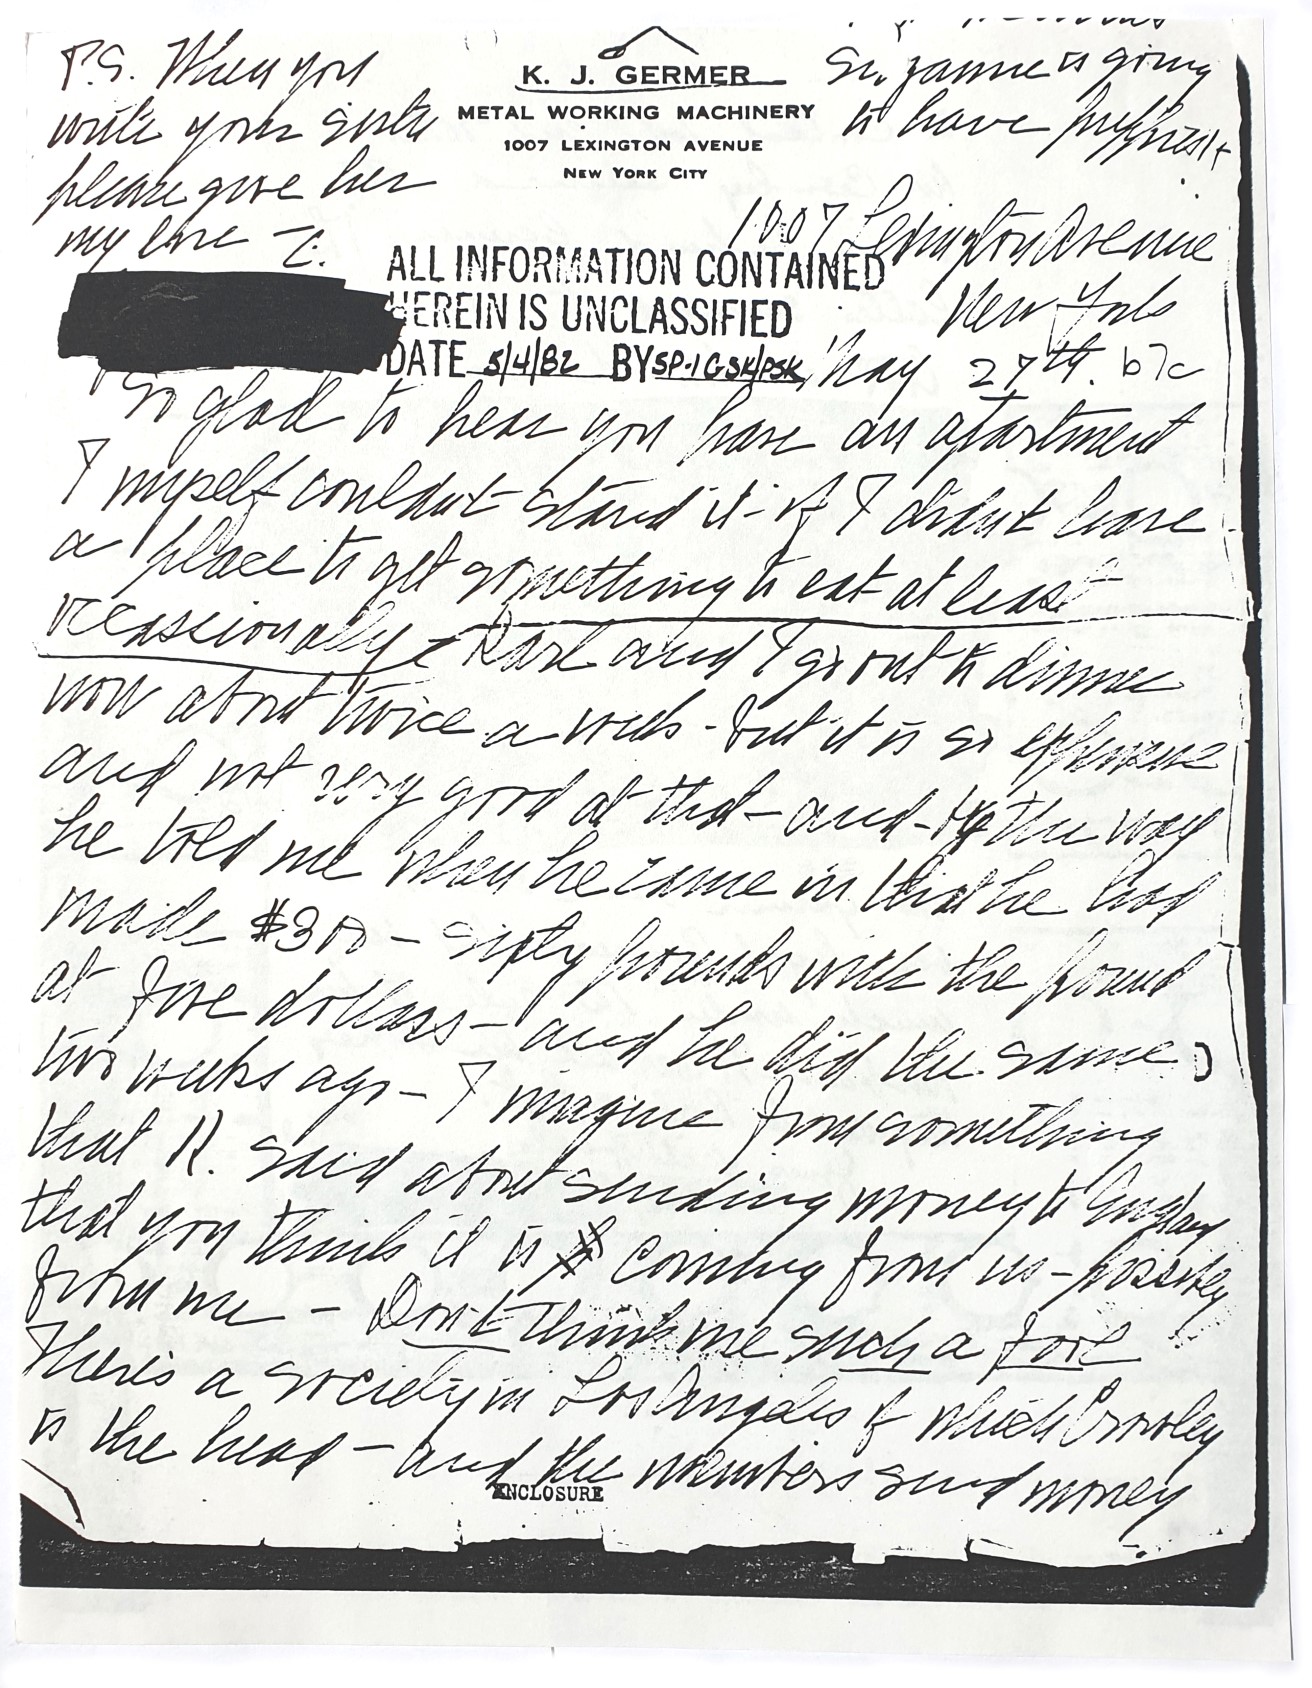 P.S. When you
write your sister
please give her
my love – C.
K. J. GERMER
METAL WORKING MACHINERY
1007 LEXINGTON AVENUE
NEW YORK CITY
Suzanne is going
to have
1007 Lexington Avenue
New York
May 27th. b7c
ALL INFORMATION CONTAINED
HEREIN IS UNCLASSIFIED
DATE 5/4/82 BY SP-1 GSK/PSK
So glad to hear you have an apartment
I myself couldn't stand it – if I didn't have
a place to get something to eat at least
occassionally – Karl and I go out to dinner
now about twice a week – but it is so expensive
and not very good at that – and – by the way
he told me when he came in that he had
made $300 – sixty pounds with the pound
at five dollars – and he did the same
two weeks ago – I imagine from something
that K. said about sending money to England
that you think it is coming from us – possibly
from me – Don't think me such a fool
There's a society in Los Angeles of which Crowley
is the head – and the members send money
ENCLOSURE